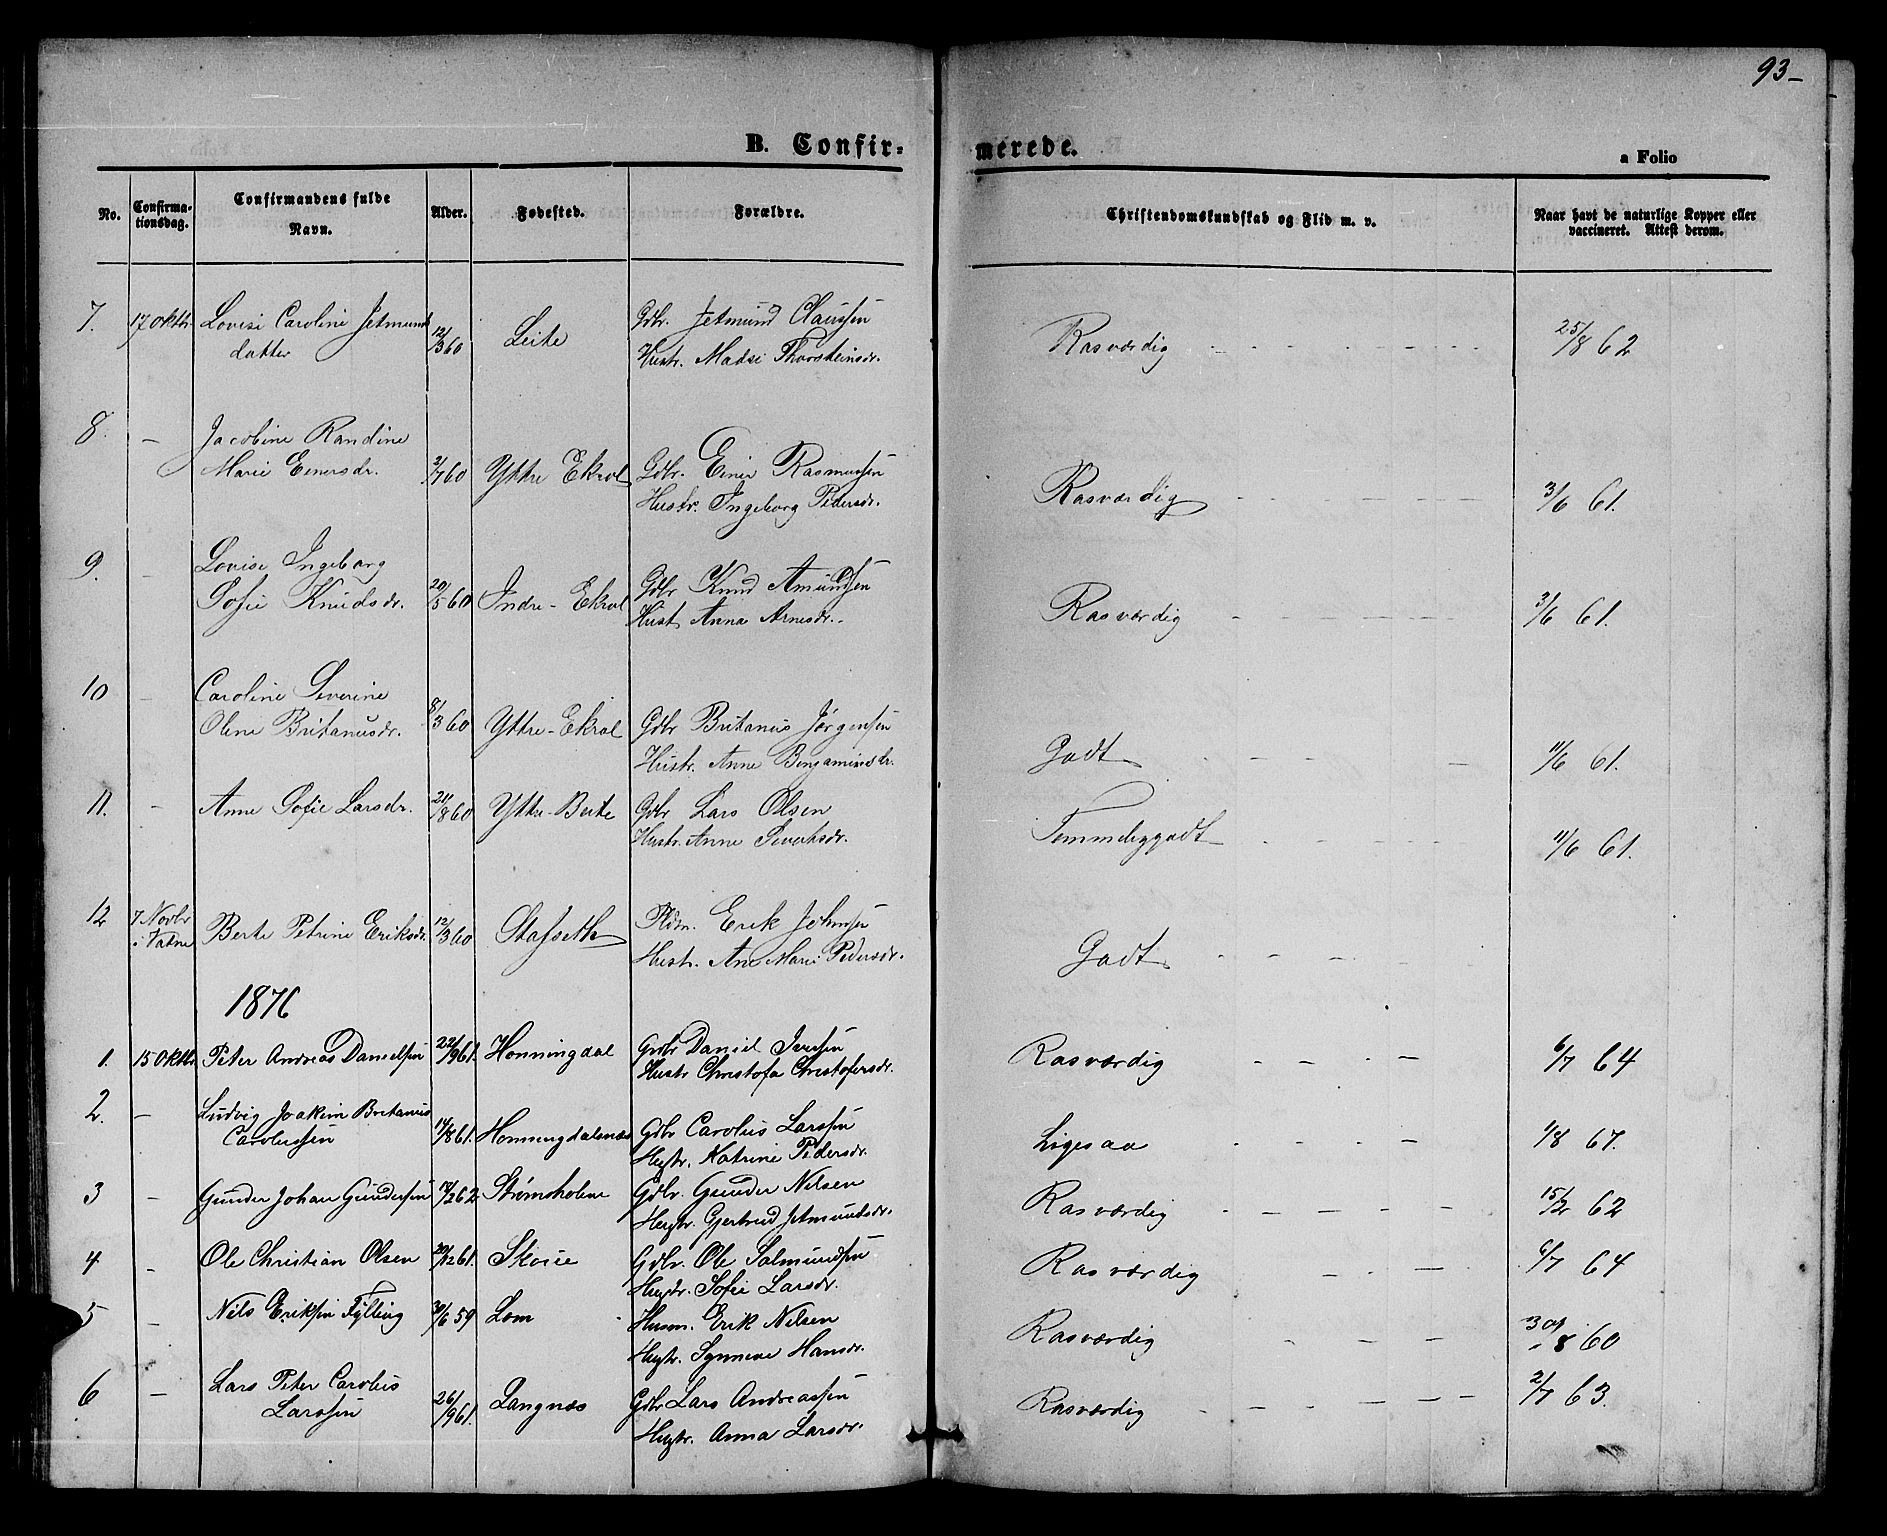 93-
B. Confir-
merede.
a Folio
No.
Confirma-
tionsdag.
Confirmandens fulde
Navn.
Alder.
Fødested.
Forældre.
Christendomskundskab og Flid m. v.
Naar havt de naturlige Kopper eller
vaccineret. Attest derom.
7. 17 Oktbr. Lovise Caroline Jetmund
datter 12/3 60 Leite Gdbr. Jetmund Claussen
Hustr. Madsi Thorsteinsdr.
Rasværdig 25/8 62
8. - Jacobine Randine
Marie Einersdr. 2/7 60 Yttre Ekrol Gdbr. Einer Rasmussen
Hustr. Ingeborg Pedersdr.
Rasværdig 3/6 61.
9. - Lovise Ingeborg
Sofie Knudsdr. 20/5 60 Indre-Ekrol Gdbr Knud Amundsen
Hust. Anna Arnesdr.
Rasværdig 3/6 61.
10 - Caroline Severine
Oline Britanusdr. 8/3 60 Yttre-Ekrol Gdbr Britanus Jørgensen
Hustr. Anne Benjaminsdr.
Godt 11/6 61.
11. - Anne Sofie Larsdr. 21/8 60 Yttre-Beite Gdbr Lars Olsen
Hustr. Anne Sivertsdr.
Temmeliggodt 11/6 61.
12 7 Novbr
i Vatne Berte Petrine Eriksdr. 12/3 60 Stafseth Pldm. Erik Johnsen
Hustr. Ane Marie Pedersdr.
Godt
1876
1. 15 Oktbr Peter Andreas Danielsen 22/9 61. Honningdal Gdbr Daniel Iversen
Hustr Christofa Christofersdr.
Rasværdig 6/7 64
2. - Ludvig Joakim Britanus
Carolussen 14/8 61. Honningdalsnæs Gdbr Carolus Larssen
Hustr. Katrine Pedersdr.
Ligesaa 1/8 67.
3 - Gunder Johan Gundersen 18/2 62. Strømsholm Gdbr. Gunder Nilsen
Hustr. Gjertrud Jetmundsdr.
Rasværdig 15/2 62
4 - Ole Christian Olsen 20/12 61. Skovie Gdbr. Ole Salmundsen
Hustr. Sofie Larsdr.
Rasværdig 6/7 64
5 - Nils Eriksen Fylling 30/6 59 Lom Husm. Erik Nilsen
Hustr. Synneve Hansdr.
Rasværdig 8 60
6 - Lars Peter Carolus
Larssen 26/9 61. Langnæs Gdbr Lars Andreassen
Hustr. Anna Larsdr.
Rasværdig 2/7 63.